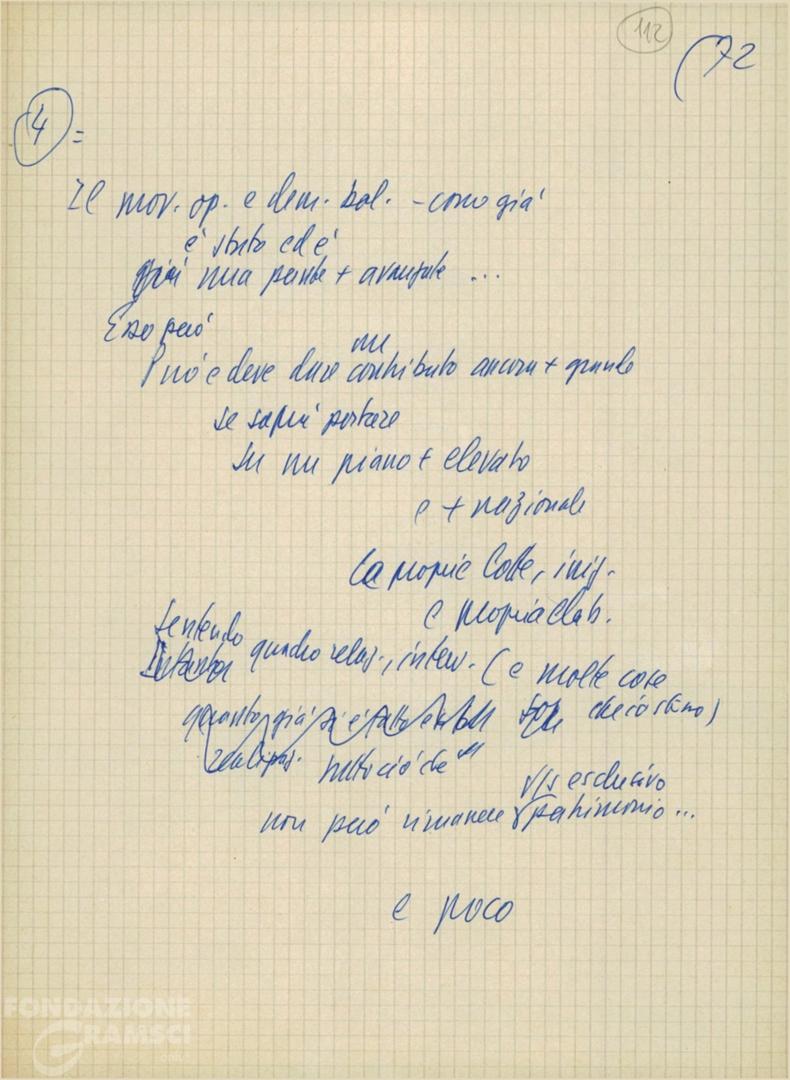 112
(72
4 =
Il mov. op. e dem. bol. - come già
è stato ed è
una parte + avanzate ...
Esso però
Può e deve dare un contributo ancora + grande
se saprà portare
su un piano + elevato
e + nazionale
la propria lotte, iniz.
e propria elab.
sentendo quadro relaz., interv. (e molte cose
quanto già si è fatto che ci stimo)
tutto ciò che
v/s esclusivo
non può rimanere patrimonio ...
e poco
FONDAZIONE
GRAMSCI